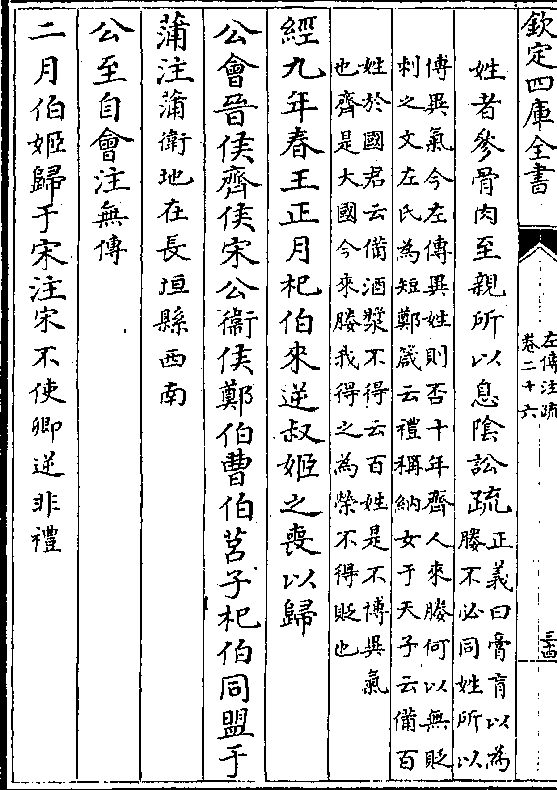 欽定四庫全書
左傳注疏
卷二十六
三十四
姓者參骨肉至親所以息陰訟疏
正義曰膏肓以為
媵不必同姓所以
博異氣今左傳異姓則否十年齊人來媵何以無貶
刺之文左氏為短鄭箴云禮稱納女于天子云備百
姓於國君云備酒漿不得云百姓是不博異氣
也齊是大國今來媵我得之為榮不得貶也
經九年春王正月杞伯來逆叔姬之喪以歸
公會晉侯齊侯宋公衛侯鄭伯曹伯莒子杞伯同盟于
蒲注蒲衛地在長垣縣西南
公至自會注無傳
二月伯姬歸于宋注宋不使卿逆非禮